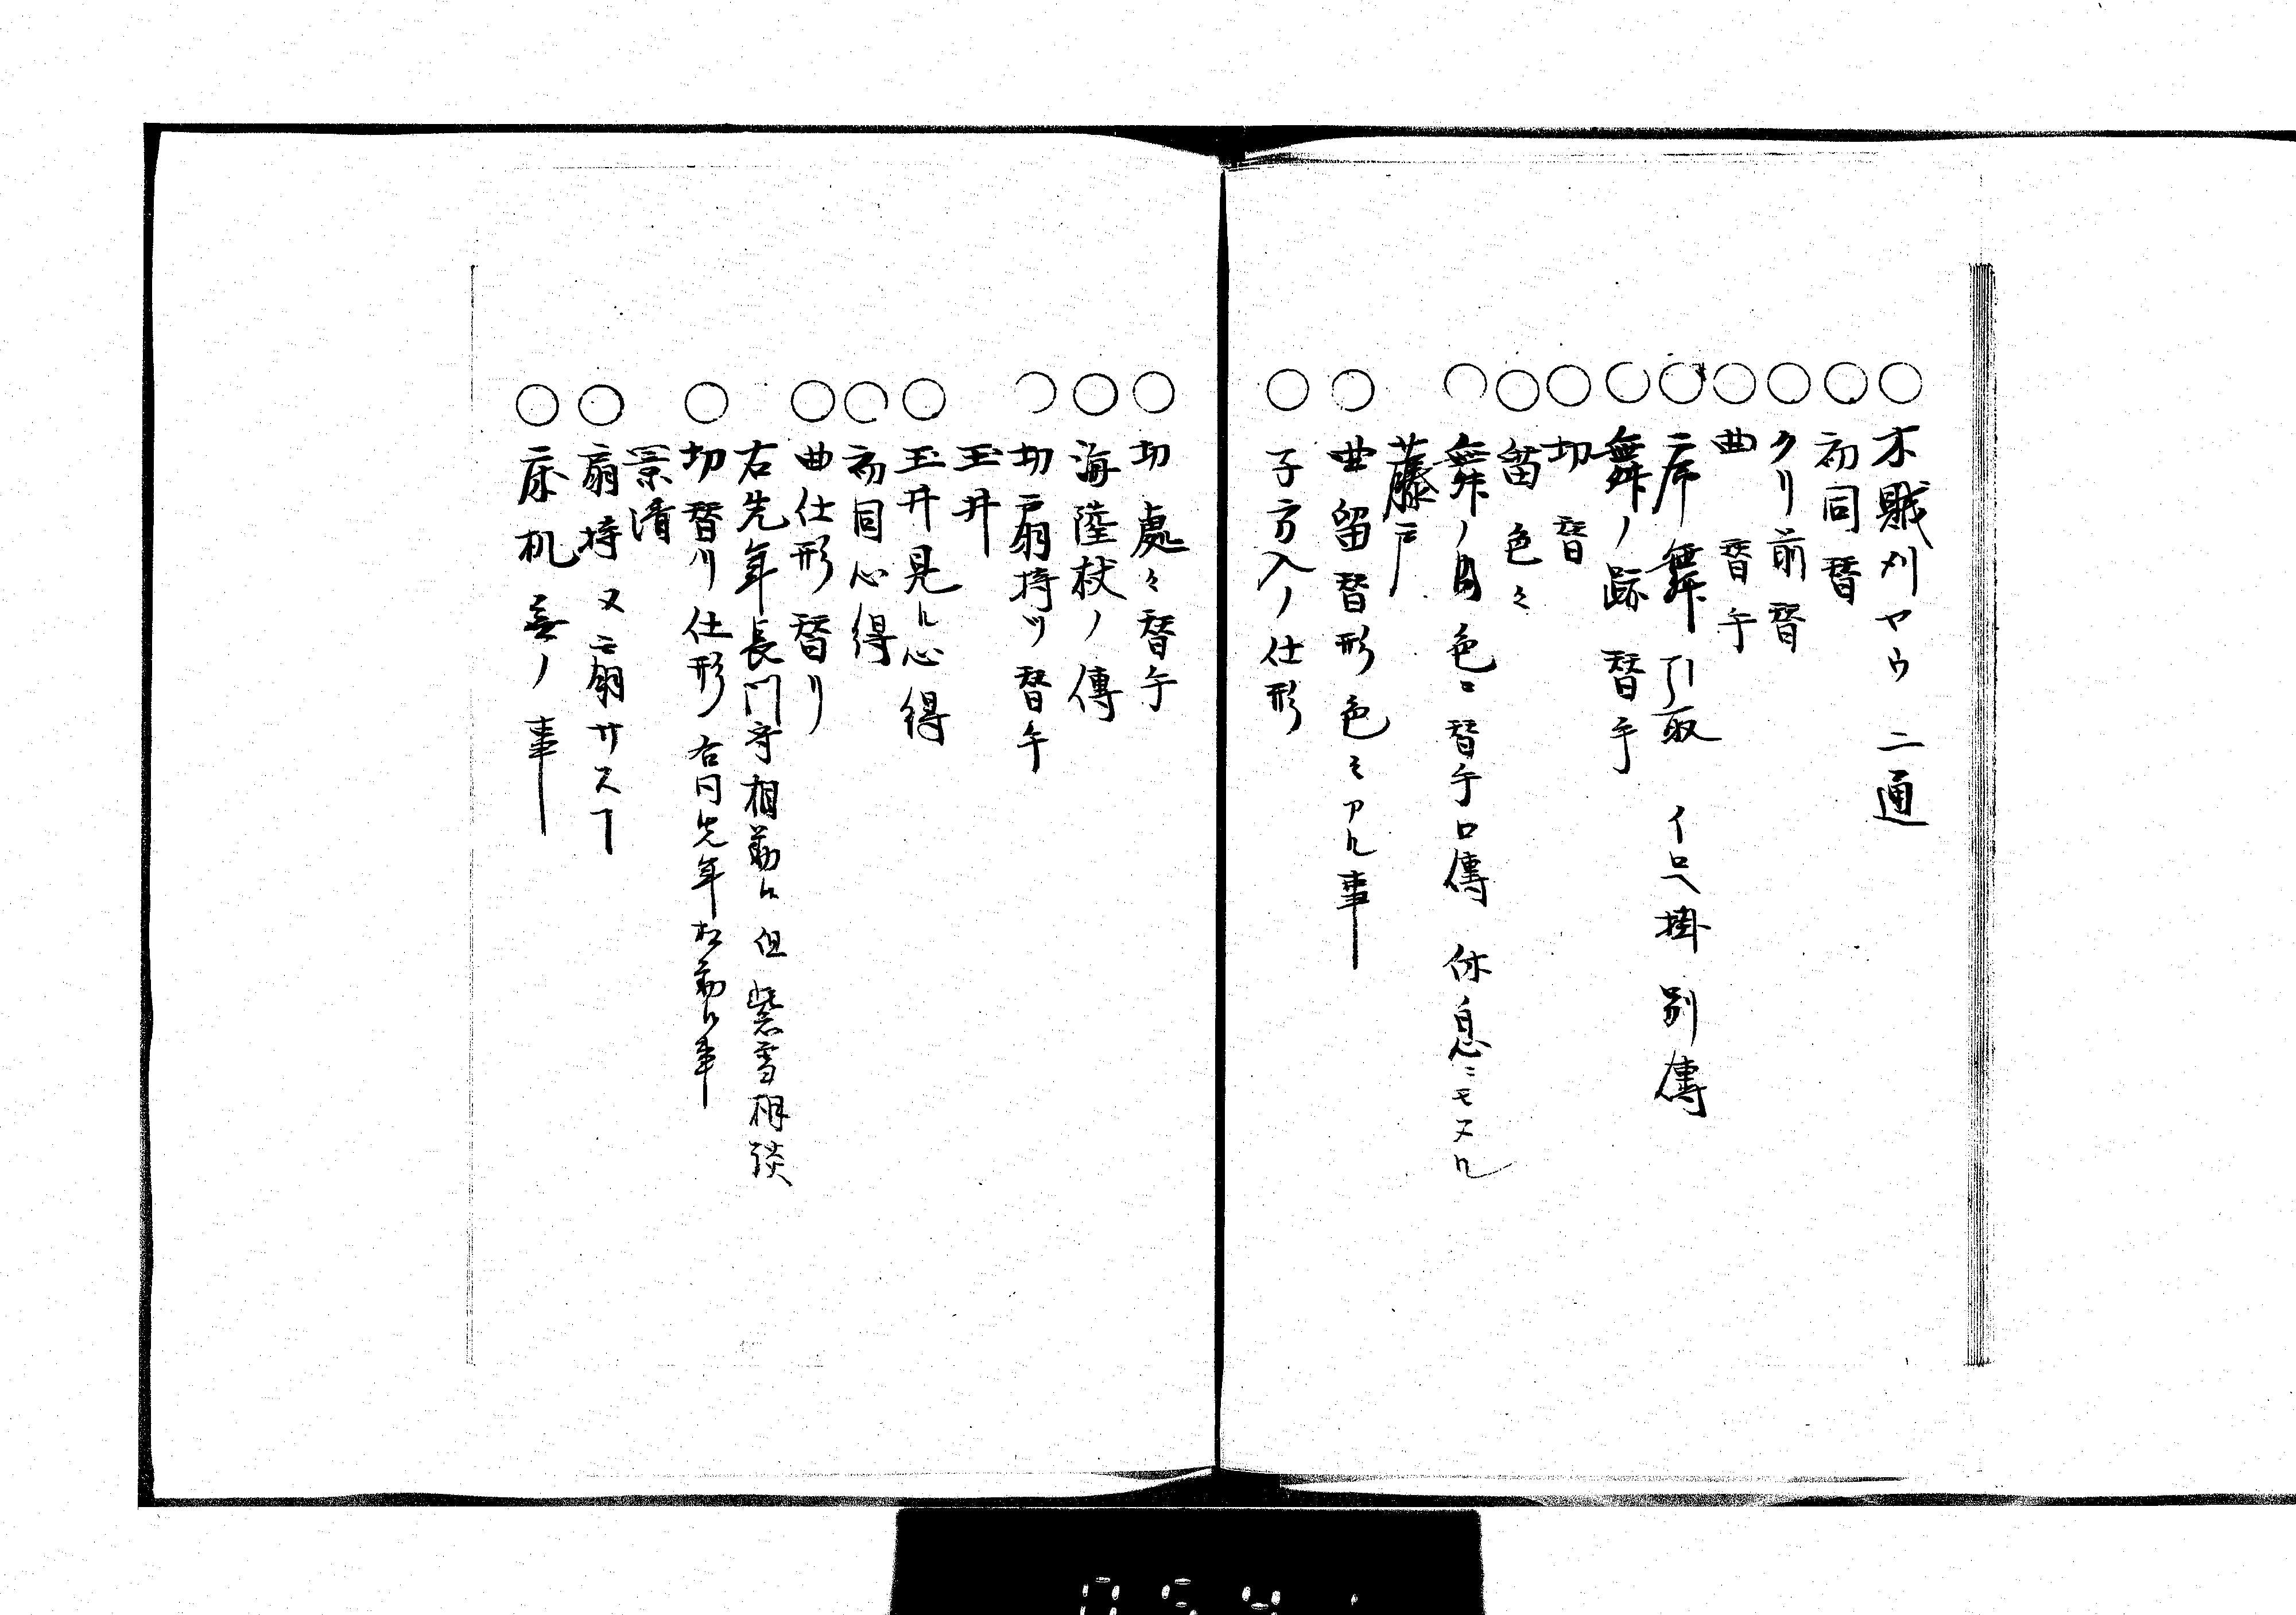 ○木賊刈ヤウ 二通
○初同替
○クリ前替
○曲 替手
○序舞引取 イロヘ掛 別傳
○舞ノ跡替手
○切替
○留色々
○舞ノ内色々替手口傳 休息ニモスル
藤戸
○曲留替形色々アル事
○子方入ノ仕形
○切處々替手
○海陸杖ノ傳
○切扇持ツ替手
玉井
○玉井見ル心得
○初同心得
○曲仕形替リ
右先年長門守相勤ル 但紫雪相談
○切替リ仕形 右同先年相勤ル事
景清
○扇持又ニ扇サスヿ
○床机無ノ事